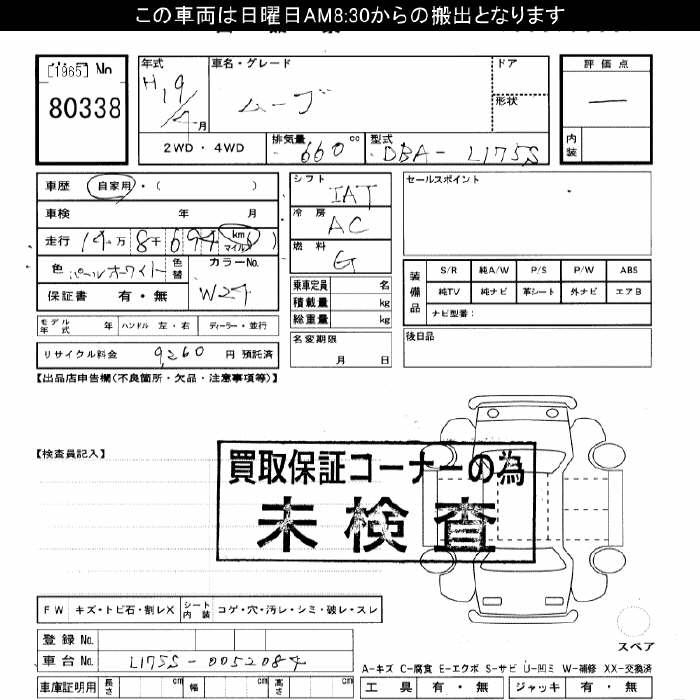 この車両は日曜日AM8:30からの搬出となります
[1965] No
80338
年式
H19/4月
車名・グレード
ムーブ
ドア
形状
評価点
—
内装
2WD・4WD
排気量 660 cc
型式 DBA-L175S
車歴 自家用・( )
車検 年 月
走行 (14万8千694 km マイル)
色 パールホワイト
色替
カラーNo.
W24
保証書 有・無
シフト IAT
冷房 AC
燃料 G
乗車定員 名
積載量 kg
総重量 kg
セールスポイント
装備品
S/R 純A/W P/S P/W ABS
純TV 純ナビ 革シート 外ナビ エアB
ナビ型番:
モデル年式 年 ハンドル 左・右 ディーラー・並行
リサイクル料金 9,260 円 預託済
名変期限
月 日
後日品
【出品店申告欄(不良箇所・欠品・注意事項等)】
【検査員記入】
買取保証コーナーの為
未検査
FW キズ・トビ石・割レX シート内装 コゲ・穴・汚レ・シミ・破レ・スレ
スペア
登録No.
車台No. L175S-0052084
A-キズ C-腐食 E-エクボ S-サビ U-凹ミ W-補修 XX-交換済
車庫証明用 長さ cm 幅 cm 高さ cm
工具 有・無 ジャッキ 有・無